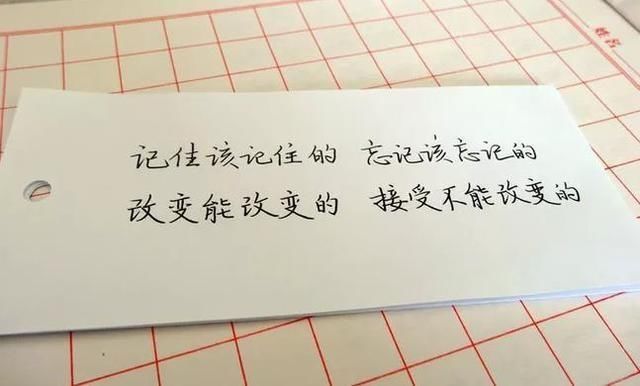 姓名
记住该记住的 忘记该忘记的
改变能改变的 接受不能改变的